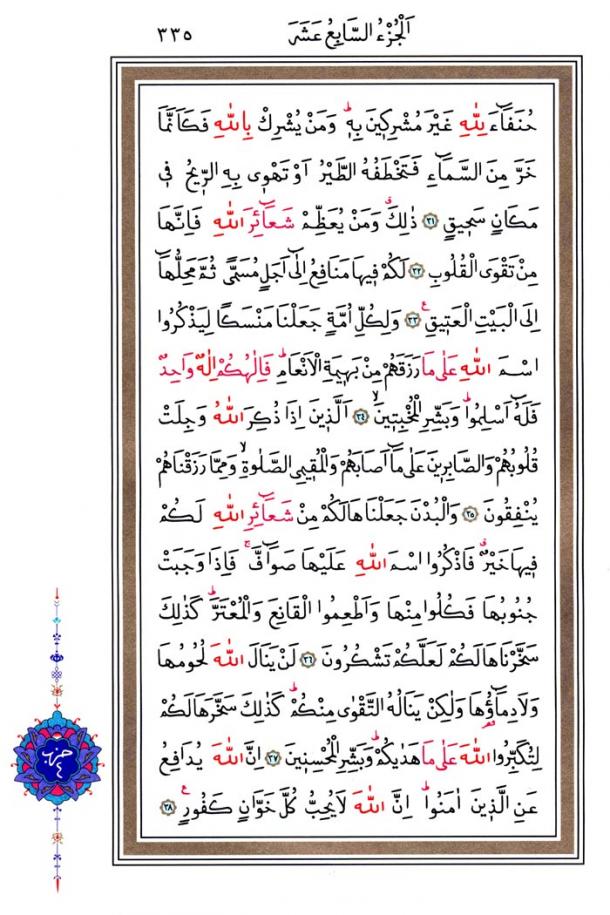 اَلْجُزْءُ السَّابِعُ عَشَرَ
٣٣٥
حُنَفَٓاءَ لِلّٰهِ غَيْرَ مُشْرِك۪ينَ بِه۪ۜ وَمَنْ يُشْرِكْ بِاللّٰهِ فَكَاَنَّمَا
خَرَّ مِنَ السَّمَٓاءِ فَتَخْطَفُهُ الطَّيْرُ اَوْ تَهْو۪ي بِهِ الرّ۪يحُ ف۪ي
مَكَانٍ سَح۪يقٍ ﴿٣١﴾ ذٰلِكَۗ وَمَنْ يُعَظِّمْ شَعَٓائِرَ اللّٰهِ فَاِنَّهَا
مِنْ تَقْوَى الْقُلُوبِ ﴿٣٢﴾ لَكُمْ ف۪يهَا مَنَافِعُ اِلٰٓى اَجَلٍ مُسَمًّى ثُمَّ مَحِلُّهَٓا
اِلَى الْبَيْتِ الْعَت۪يقِ۟ ﴿٣٣﴾ وَلِكُلِّ اُمَّةٍ جَعَلْنَا مَنْسَكًا لِيَذْكُرُوا
اسْمَ اللّٰهِ عَلٰى مَا رَزَقَهُمْ مِنْ بَه۪يمَةِ الْاَنْعَامِۜ فَاِلٰهُكُمْ اِلٰهٌ وَاحِدٌ
فَلَهُٓ اَسْلِمُواۜ وَبَشِّرِ الْمُخْبِت۪ينَۙ ﴿٣٤﴾ اَلَّذ۪ينَ اِذَا ذُكِرَ اللّٰهُ وَجِلَتْ
قُلُوبُهُمْ وَالصَّابِر۪ينَ عَلٰى مَٓا اَصَابَهُمْ وَالْمُق۪يمِي الصَّلٰوةِۙ وَمِمَّا رَزَقْنَاهُمْ
يُنْفِقُونَ ﴿٣٥﴾ وَالْبُدْنَ جَعَلْنَاهَا لَكُمْ مِنْ شَعَٓائِرِ اللّٰهِ لَكُمْ
ف۪يهَا خَيْرٌۗ فَاذْكُرُوا اسْمَ اللّٰهِ عَلَيْهَا صَوَٓافَّۚ فَاِذَا وَجَبَتْ
جُنُوبُهَا فَكُلُوا مِنْهَا وَاَطْعِمُوا الْقَانِعَ وَالْمُعْتَرَّۜ كَذٰلِكَ
سَخَّرْنَاهَا لَكُمْ لَعَلَّكُمْ تَشْكُرُونَ ﴿٣٦﴾ لَنْ يَنَالَ اللّٰهَ لُحُومُهَا
وَلَا دِمَٓاؤُ۬هَا وَلٰكِنْ يَنَالُهُ التَّقْوٰى مِنْكُمْۜ كَذٰلِكَ سَخَّرَهَا لَكُمْ
لِتُكَبِّرُوا اللّٰهَ عَلٰى مَا هَدٰيكُمْۜ وَبَشِّرِ الْمُحْسِن۪ينَ ﴿٣٧﴾ اِنَّ اللّٰهَ يُدَافِعُ
عَنِ الَّذ۪ينَ اٰمَنُواۜ اِنَّ اللّٰهَ لَا يُحِبُّ كُلَّ خَوَّانٍ كَفُورٍ۟ ﴿٣٨﴾
حزب
٤